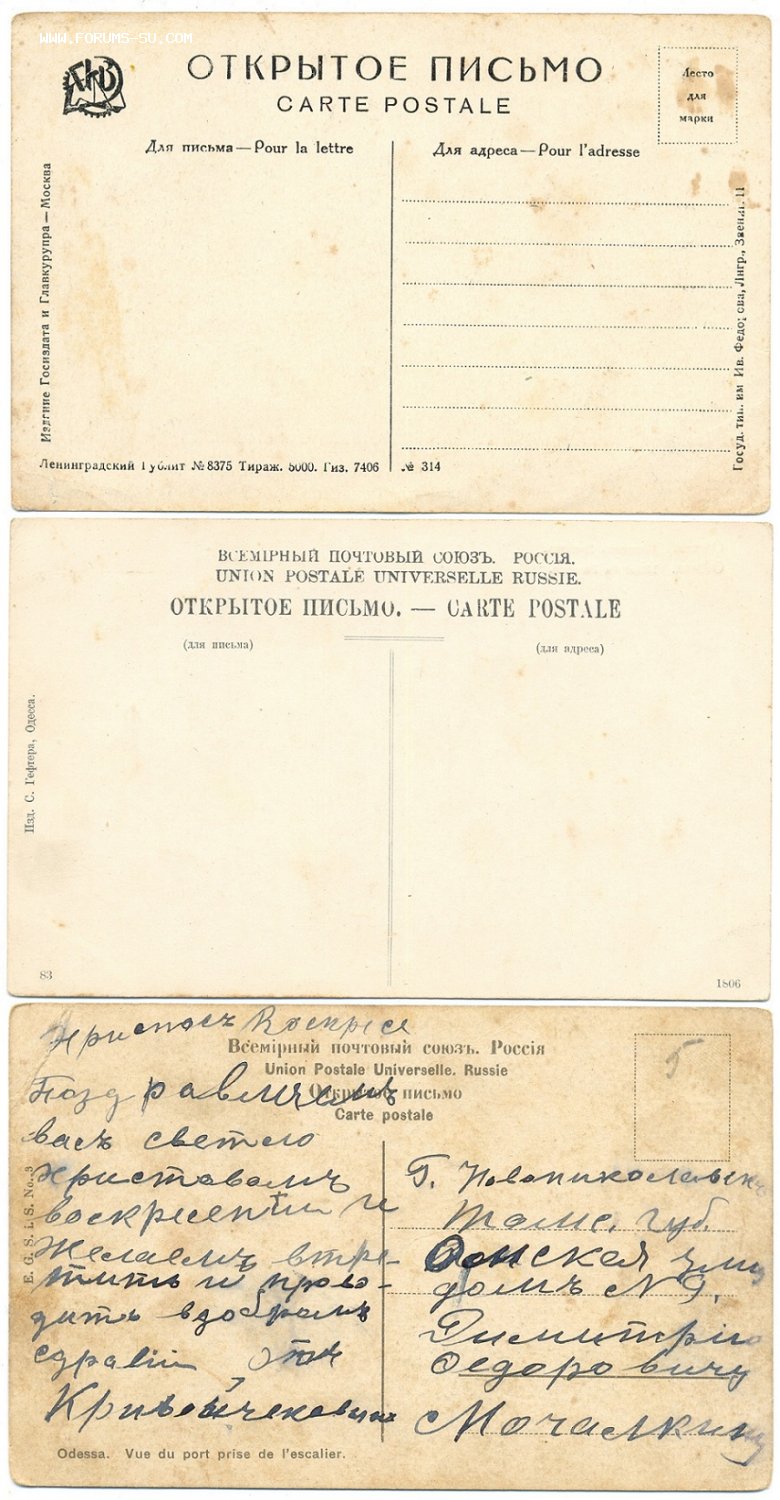 WWW.FORUMS-SU.COM
ОТКРЫТОЕ ПИСЬМО
CARTE POSTALE
Место
для
марки
Для письма — Pour la lettre
Для адреса — Pour l'adresse
Издание Госиздата и Главкурупра — Москва
Госуд. тип. им Ив. Федорова, Лнгр., Звениг. 11
Ленинградский Гублит № 8375 Тираж. 5000. Гиз. 7406
№ 314
ВСЕМІРНЫЙ ПОЧТОВЫЙ СОЮЗЪ. РОССІЯ.
UNION POSTALE UNIVERSELLE RUSSIE.
ОТКРЫТОЕ ПИСЬМО. — CARTE POSTALE
(для письма)
(для адреса)
Изд. С. Гефтера, Одесса.
83
1806
Христосъ Воскресе
Всемірный почтовый союзъ. Россія
Union Postale Universelle. Russie
Открытое письмо
Carte postale
5
Поздравлчаемъ
васъ светло
Христовамъ
воскресеніи и
Желаемъ встре-
тить и прово-
дить вдобрамъ
сдравіи
E. G. S. i. S. No. 3
Г. Новониколаевскъ
Томс. губ.
улиц
домъ N 9.
Димитрію
Федоровичу
Мочалкину
Odessa. Vue du port prise de l'escalier.